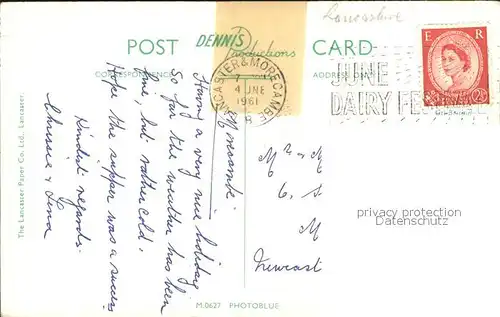 Lancashire
POST DENNIS Productions CARD
CORRESPONDENCE
ADDRESS ONLY
LANCASTER & MORECAMBE
4 JNE
1961
B
JUNE
DAIRY FESTIVAL
E R
2½D
Morecambe
Having a very nice holiday
So far the weather has been
fine, but rather cold.
Hope the supper was a success
Kindest regards
Chrissie & Lena
The Lancaster Paper Co. Ltd., Lancaster.
Mr & M
6. S
M
Newcast
privacy protection
Datenschutz
M.0627 PHOTOBLUE